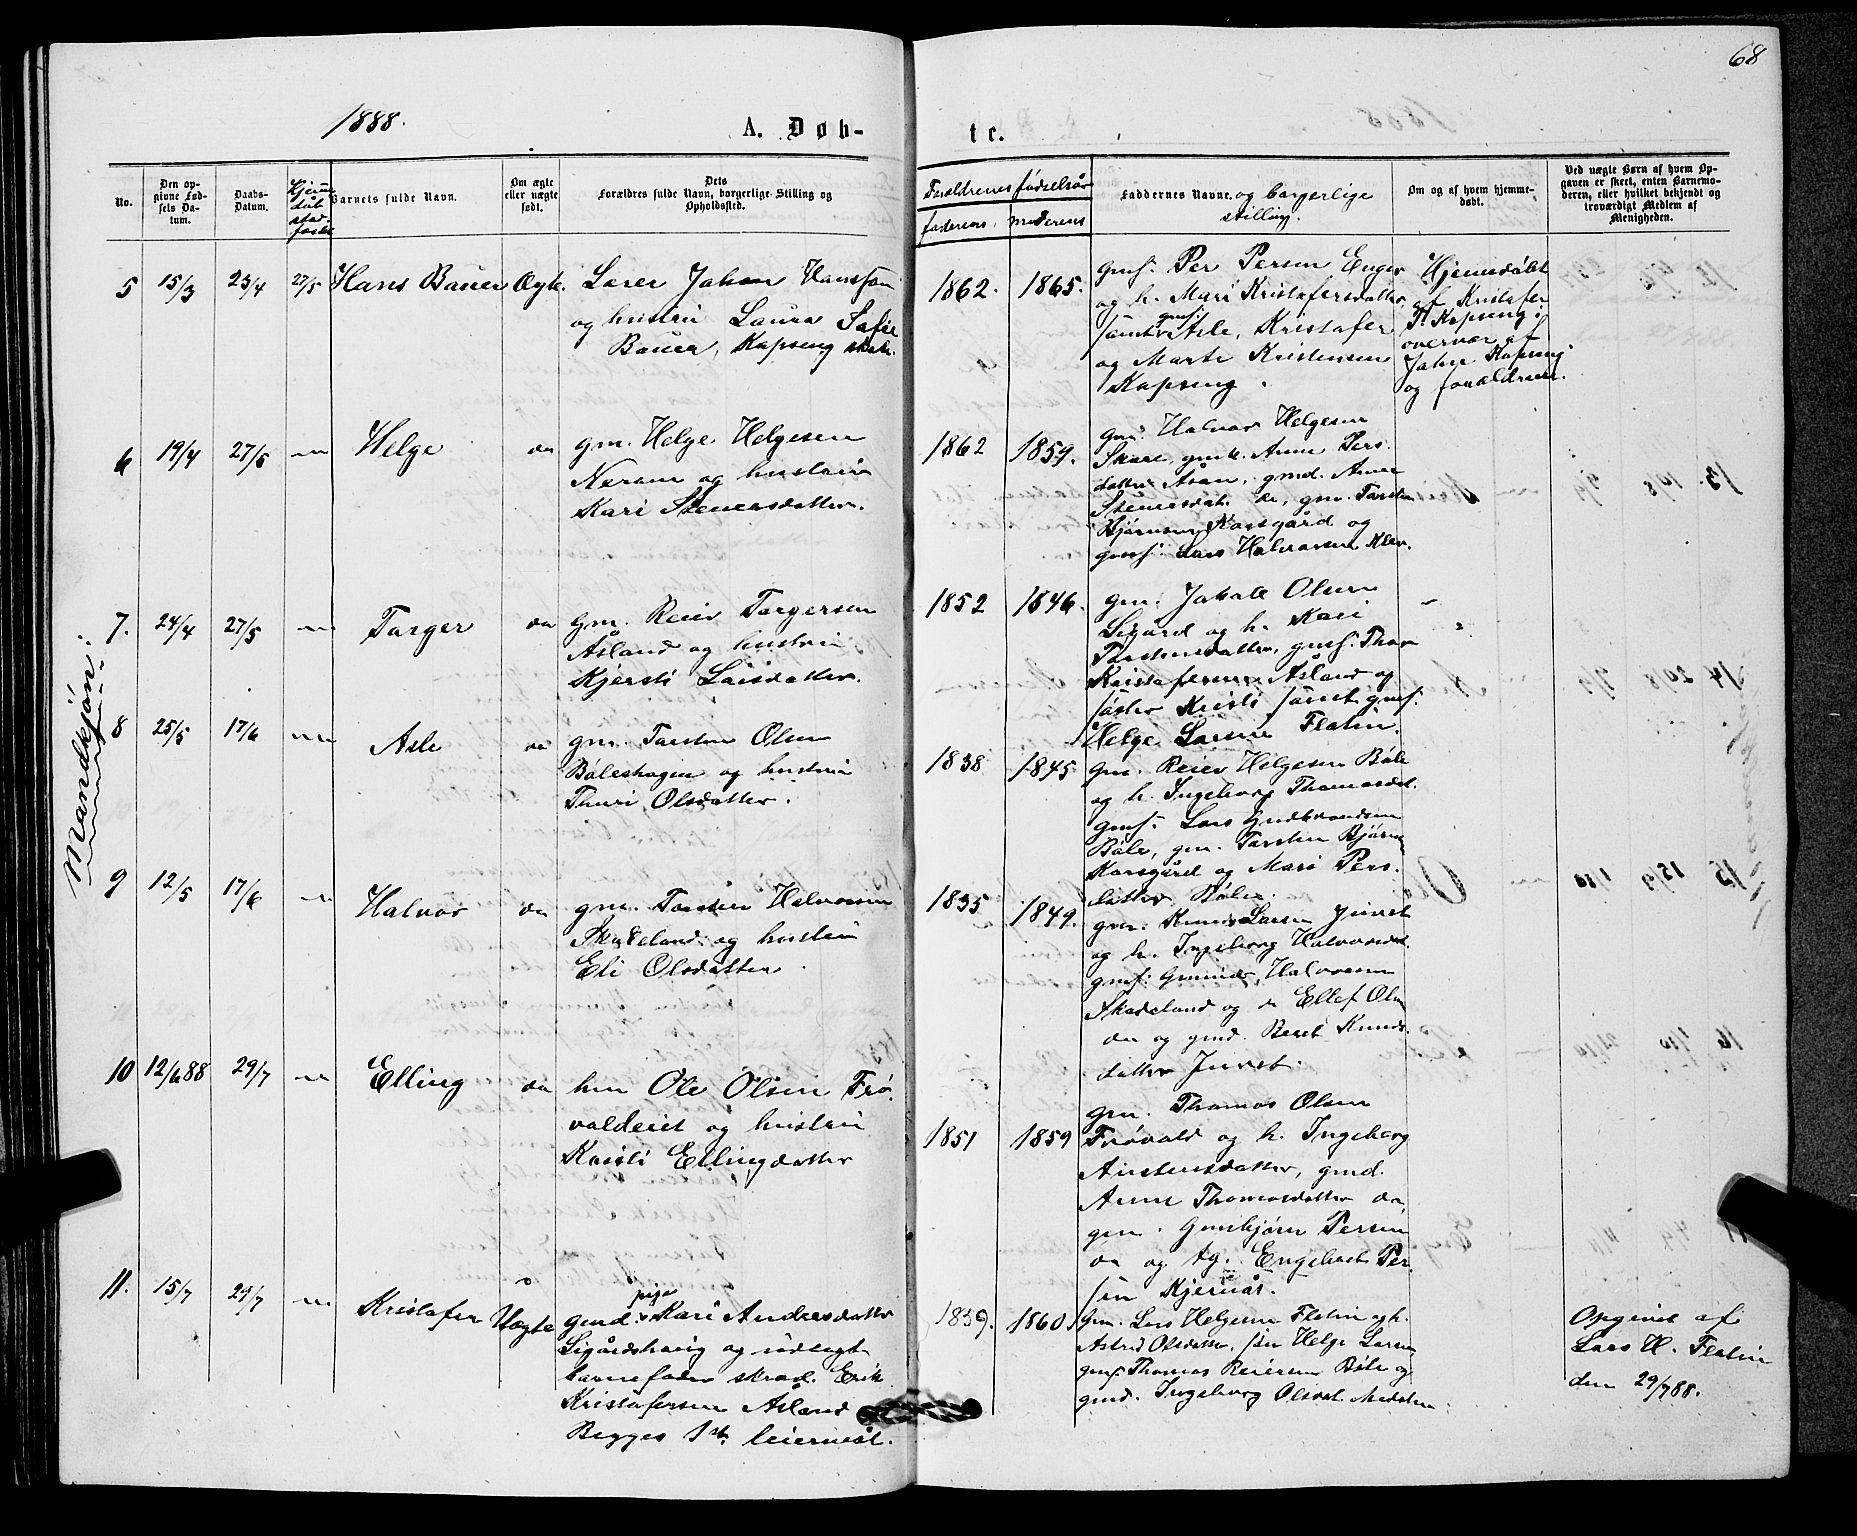 68
1888.
A. Døb-
te.
No.
Den op-
givne Fød-
sels Da-
tum.
Daabs-
Datum.
Hjemme
døb
stad-
fæstet
Barnets fulde Navn.
Om ægte
eller uægte
født.
Dets
Forældres fulde Navn, borgerlige Stilling og
Opholdssted.
Forældrenes fødselsår
faderens, moderens
Faddernes Navne og borgerlige
stilling.
Om og af hvem hjemme-
døbt.
Ved uægte Børn af hvem Op-
gaven er skeet, enten Barnemo-
deren, eller hvilket bekjendt og
troværdigt Medlem af
Menigheden.
Mandkjøn:
5 15/3 23/4 27/5 Hans Bauer Ægte.
Lærer Johan Hansson
og hustru Laura Sofie
Bauer, Kapseng
1862. 1865.
gmf. Per Persen Enger
og h. Mari Kristofersdatter,
samt gmf. Asle, Kristofer
og Marte Kristensen
Kapseng.
Hjemmedøbt
af Kristofer
T. Kapseng i
overvær af
John Kapseng
og forældrene.
6 19/4 27/5 Helge do
gm. Helge Helgesen
Neråen og hustru
Kari Steenersdatter.
1862 1859.
gm. Halvor Helgesen
Skare, gmk. Anne Pers-
datter Åsan, gmd. Anne
Steenersdat. do, gm. Torsten
Bjørnsen Korsgård og
gmf. Lars Halvorsen Klev.
7. 24/4 27/5 Torger do
gm. Reier Torgersen
Åsland og hustru
Kjersti Larsdatter.
1852 1846.
gm. Jakob Olsen
Sigård og h. Kari
Torstensdatter, gmf. Thor
Kristofersen Åsland og
søster Kristi samt gmf.
Helge Larsen Flatin.
8 25/5 17/6 Asle do
gm. Torsten Olsen
Bøleshagen og hustru
Thuri Olsdatter.
1838 1845
gm. Reier Helgesen Bøle
og h. Ingeborg Thomasdat.
gmf. Lars Gudbrandsen
Bøle, gm. Torsten Bjørns.
Korsgård og Mari Pers-
datter Bøle.
9 12/5 17/6 Halvor do
gm. Torsten Halvorsen
Skadeland og hustru
Eli Olsdatter.
1835 1849.
gm. Knud Larsen Juvet
og h. Ingeborg Halvorsdat
gmf. Gunder Halvorsen
Skadeland og do Ellef Olsen
do og gmd. Beret Knuds-
datter Juvet.
10 12/6 88 29/7 Elling do
hm Ole Olsen Frø-
valdeiet og hustru
Kristi Ellingdatter
1851 1859
gm. Thomas Olsen
Frøvald og h. Ingeborg
Austensdatter, gmd.
Anne Thomasdatter do,
gm. Gunbjørn Persen
do og tg. Engebret Per-
sen Kjernås.
11. 15/7 29/7 Kristofer Uægte
gmd. pige Kari Andersdatter
Sigårdshaug og udlagt
barnefader skrad. Erik
Kristofersen Åsland
Begges 1ste leiermål.
1859. 1860.
Gm. Lars Helgesen Flatin og h.
Astrid Olsdatter, søn Helge Larsen
gmf Thomas Reiersen Bøle og
gmd. Ingeborg Olsdat. Medalen.
Opgivet af
Lars H. Flatin
den 29/7 88.